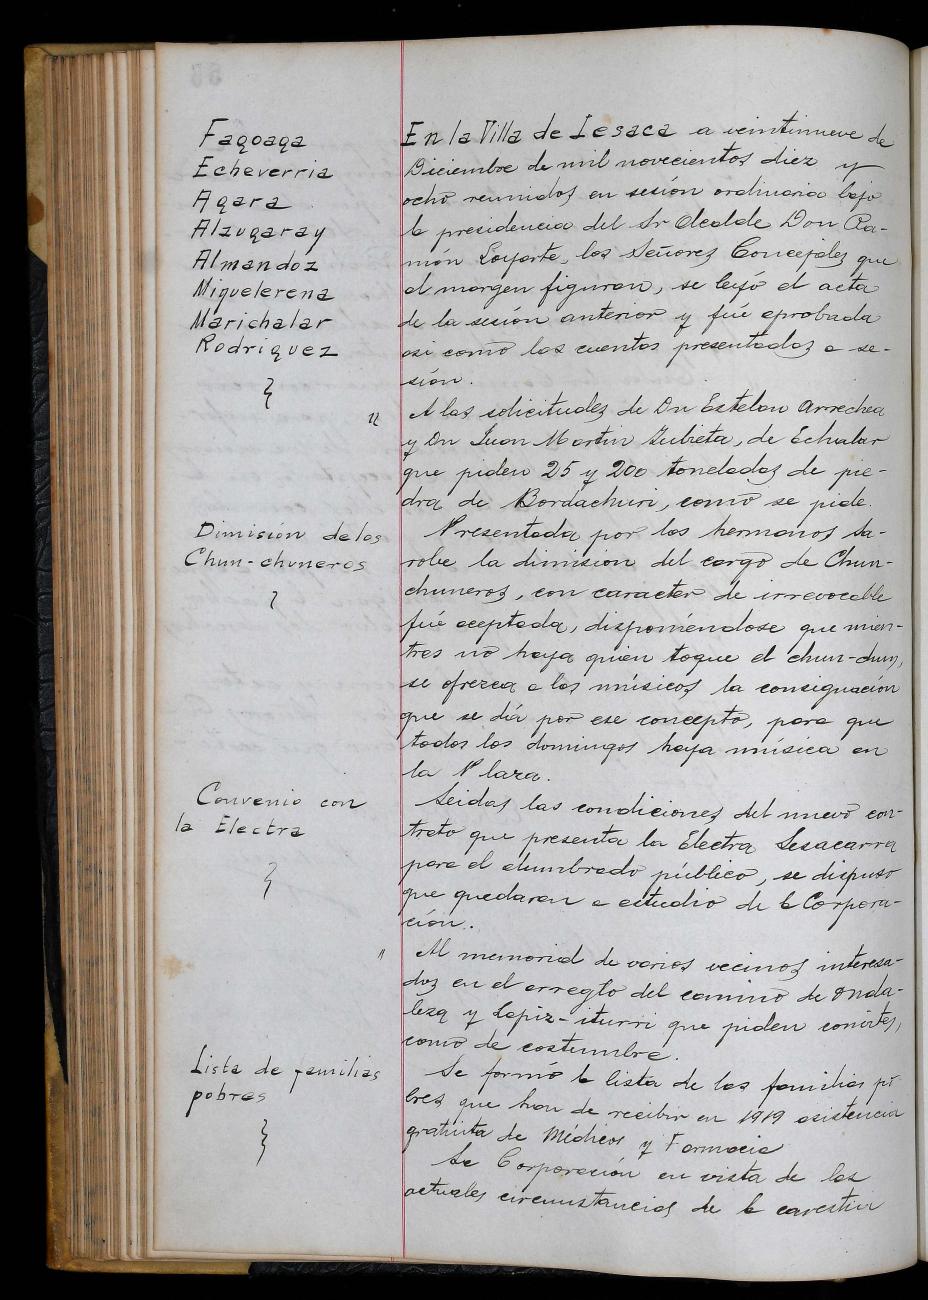 Fagoaga
Echeverria
Agara
Alzugaray
Almandoz
Miguelerena
Marichalar
Rodriguez
En la Villa de Lesaca a veintinueve de
Diciembre de mil novecientos diez y
ocho reunidos en sesión ordinaria bajo
la presidencia del Sr Alcalde Don Ra-
món Loyarte, los Señores Concejales que
al margen figuran, se leyó el acta
de la sesión anterior y fué aprobada
asi como las cuentas presentadas a se-
sión.
" A las solicitudes de Dn Esteban Arrechea
y Dn Juan Martin Zubieta, de Echalar
que piden 25 y 200 toneladas de pie-
dra de Bordachuri, como se pide.
Dimisión de los
Chun-chuneros
Presentada por los hermanos Sa-
robe la dimision del cargo de Chun-
chuneros, con caracter de irrevocable
fué aceptada, disponiéndose que mien-
tras no haya quien toque el chun-chun,
se ofrezca a los músicos la consignación
que se dá por ese concepto, para que
todos los domingos haya música en
la Plaza.
Convenio con
la Electra
Leidas las condiciones del nuevo con-
trato que presenta la Electra Lesacarra
para el alumbrado público, se dispuso
que quedaran a estudio de la Corpora-
ción.
" Al memorial de varios vecinos interesa-
dos en el arreglo del camino de Onda-
leza y Lapiz-iturri que piden convites,
como de costumbre.
Lista de familias
pobres
Se formó la lista de las familias po-
bres que han de recibir en 1919 asistencia
gratuita de Médicos y Farmacia
La Corporación en vista de las
actuales circunstancias de la carestia